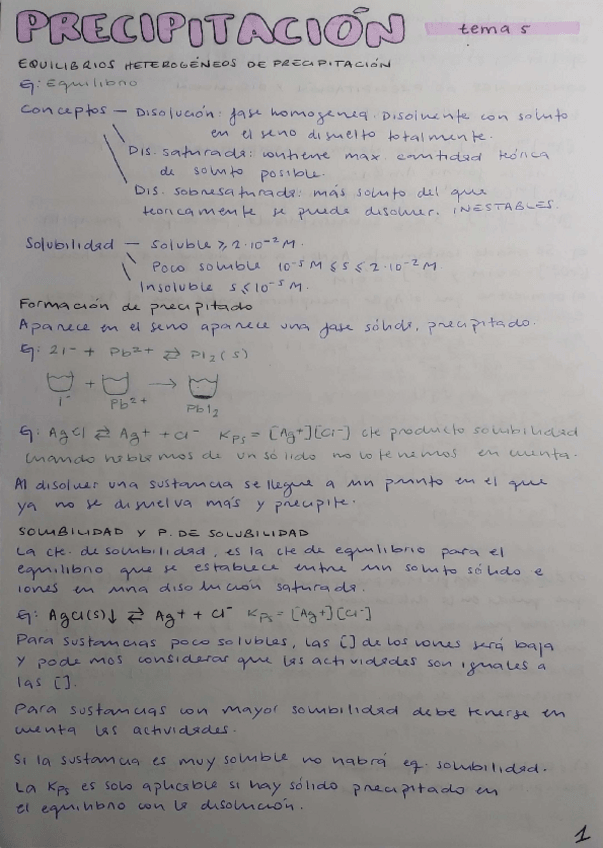 PRECIPITACIÓN
tema 5
EQUILIBRIOS HETEROGÉNEOS DE PRECIPITACIÓN
Ej: Equilibrio
Conceptos — Disolución: fase homogenea. Disolvente con soluto
en el seno disuelto totalmente.
Dis. saturada: contiene max. cantidad teórica
de soluto posible.
Dis. sobresaturada: más soluto del que
teoricamente se puede disolver. INESTABLES.
Solubilidad — Soluble ≥ 2·10⁻² M.
Poco soluble 10⁻⁵ M ≤ s ≤ 2·10⁻² M.
Insoluble s ≤ 10⁻⁵ M.
Formación de precipitado
Aparece en el seno aparece una fase sólida, precipitado.
Ej: 2I⁻ + Pb²⁺ ⇄ PI₂ (s)
+ →
I⁻ Pb²⁺ PbI₂
Ej: AgCl ⇄ Ag⁺ + Cl⁻ Kps = [Ag⁺][Cl⁻] cte producto solubilidad
Cuando hablemos de un sólido no lo tenemos en cuenta.
Al disolver una sustancia se llegue a un punto en el que
ya no se disuelva más y precipite.
SOLUBILIDAD Y P. DE SOLUBILIDAD
La cte. de solubilidad, es la cte de equilibrio para el
equilibrio que se establece entre un soluto sólido e
iones en una disolución saturada.
Ej: AgCl(s)↓ ⇄ Ag⁺ + Cl⁻ Kps = [Ag⁺][Cl⁻]
Para sustancias poco solubles, las [] de los iones será baja
y podemos considerar que las actividades son iguales a
las [].
Para sustancias con mayor solubilidad debe tenerse en
cuenta las actividades.
Si la sustancia es muy soluble no habrá eq. solubilidad.
La Kps es solo aplicable si hay sólido precipitado en
el equilibrio con la disolución.
1